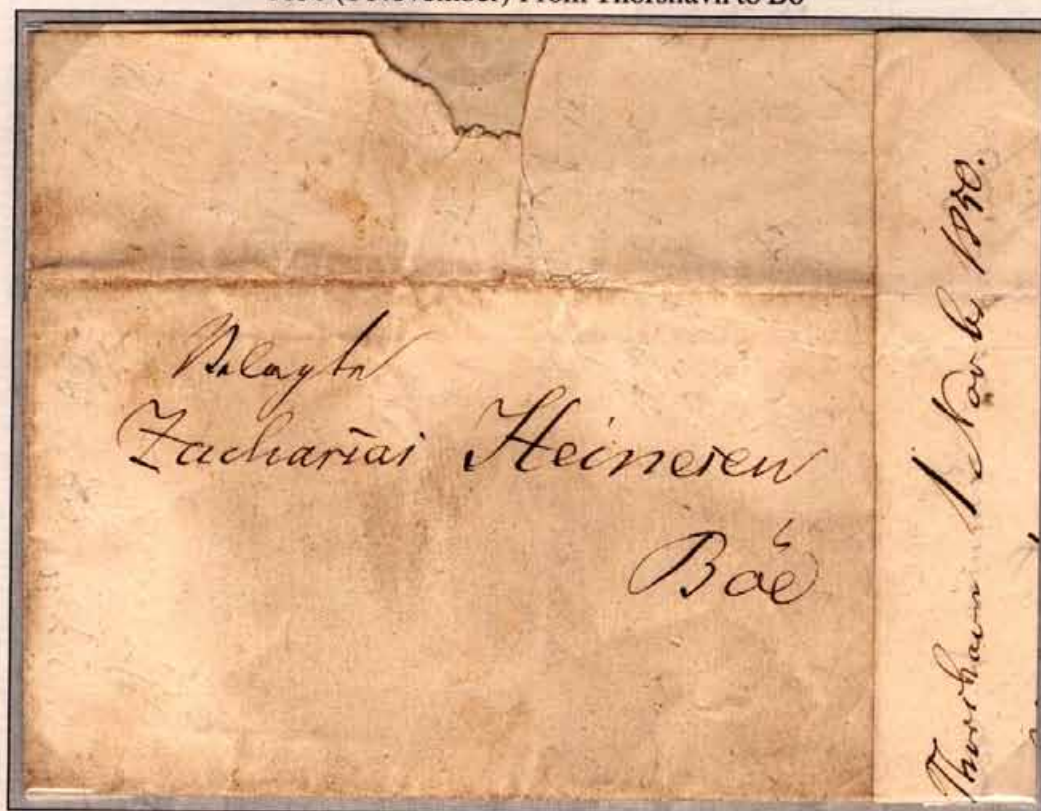 From Thorshavn to Bø
Zacharias Heinesen
Böe
Thorshavn 1 Novbr 1850.